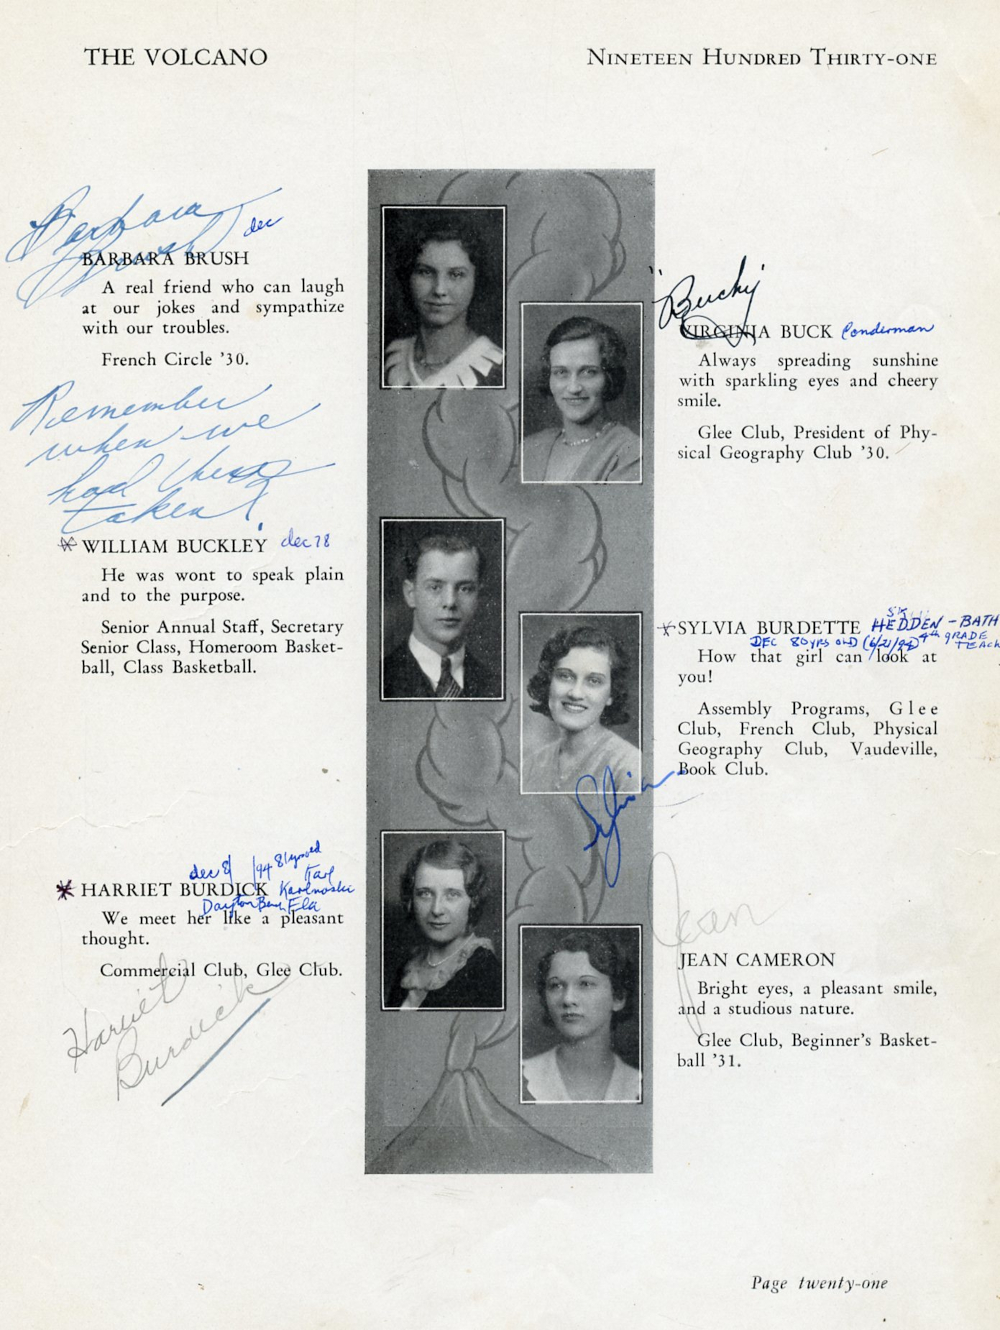 THE VOLCANO
NINETEEN HUNDRED THIRTY-ONE
Barbara
Brush
dec
BARBARA BRUSH
A real friend who can laugh
at our jokes and sympathize
with our troubles.
French Circle '30.
Remember
when we
had these
taken?
WILLIAM BUCKLEY dec 78
He was wont to speak plain
and to the purpose.
Senior Annual Staff, Secretary
Senior Class, Homeroom Basket-
ball, Class Basketball.
dec 81 /94 81 yrs old
Karl
HARRIET BURDICK
We meet her like a pleasant
thought.
Commercial Club, Glee Club.
Harriet
Burdick
"Bucky
VIRGINIA BUCK Conderman
Always spreading sunshine
with sparkling eyes and cheery
smile.
Glee Club, President of Phy-
sical Geography Club '30.
SYLVIA BURDETTE HEDDEN - BATH
DEC 80 YRS OLD (6/21/94) 4th GRADE
TEACH
How that girl can look at
you!
Assembly Programs, Glee
Club, French Club, Physical
Geography Club, Vaudeville,
Book Club.
Sylvia
Jean
JEAN CAMERON
Bright eyes, a pleasant smile,
and a studious nature.
Glee Club, Beginner's Basket-
ball '31.
Page twenty-one